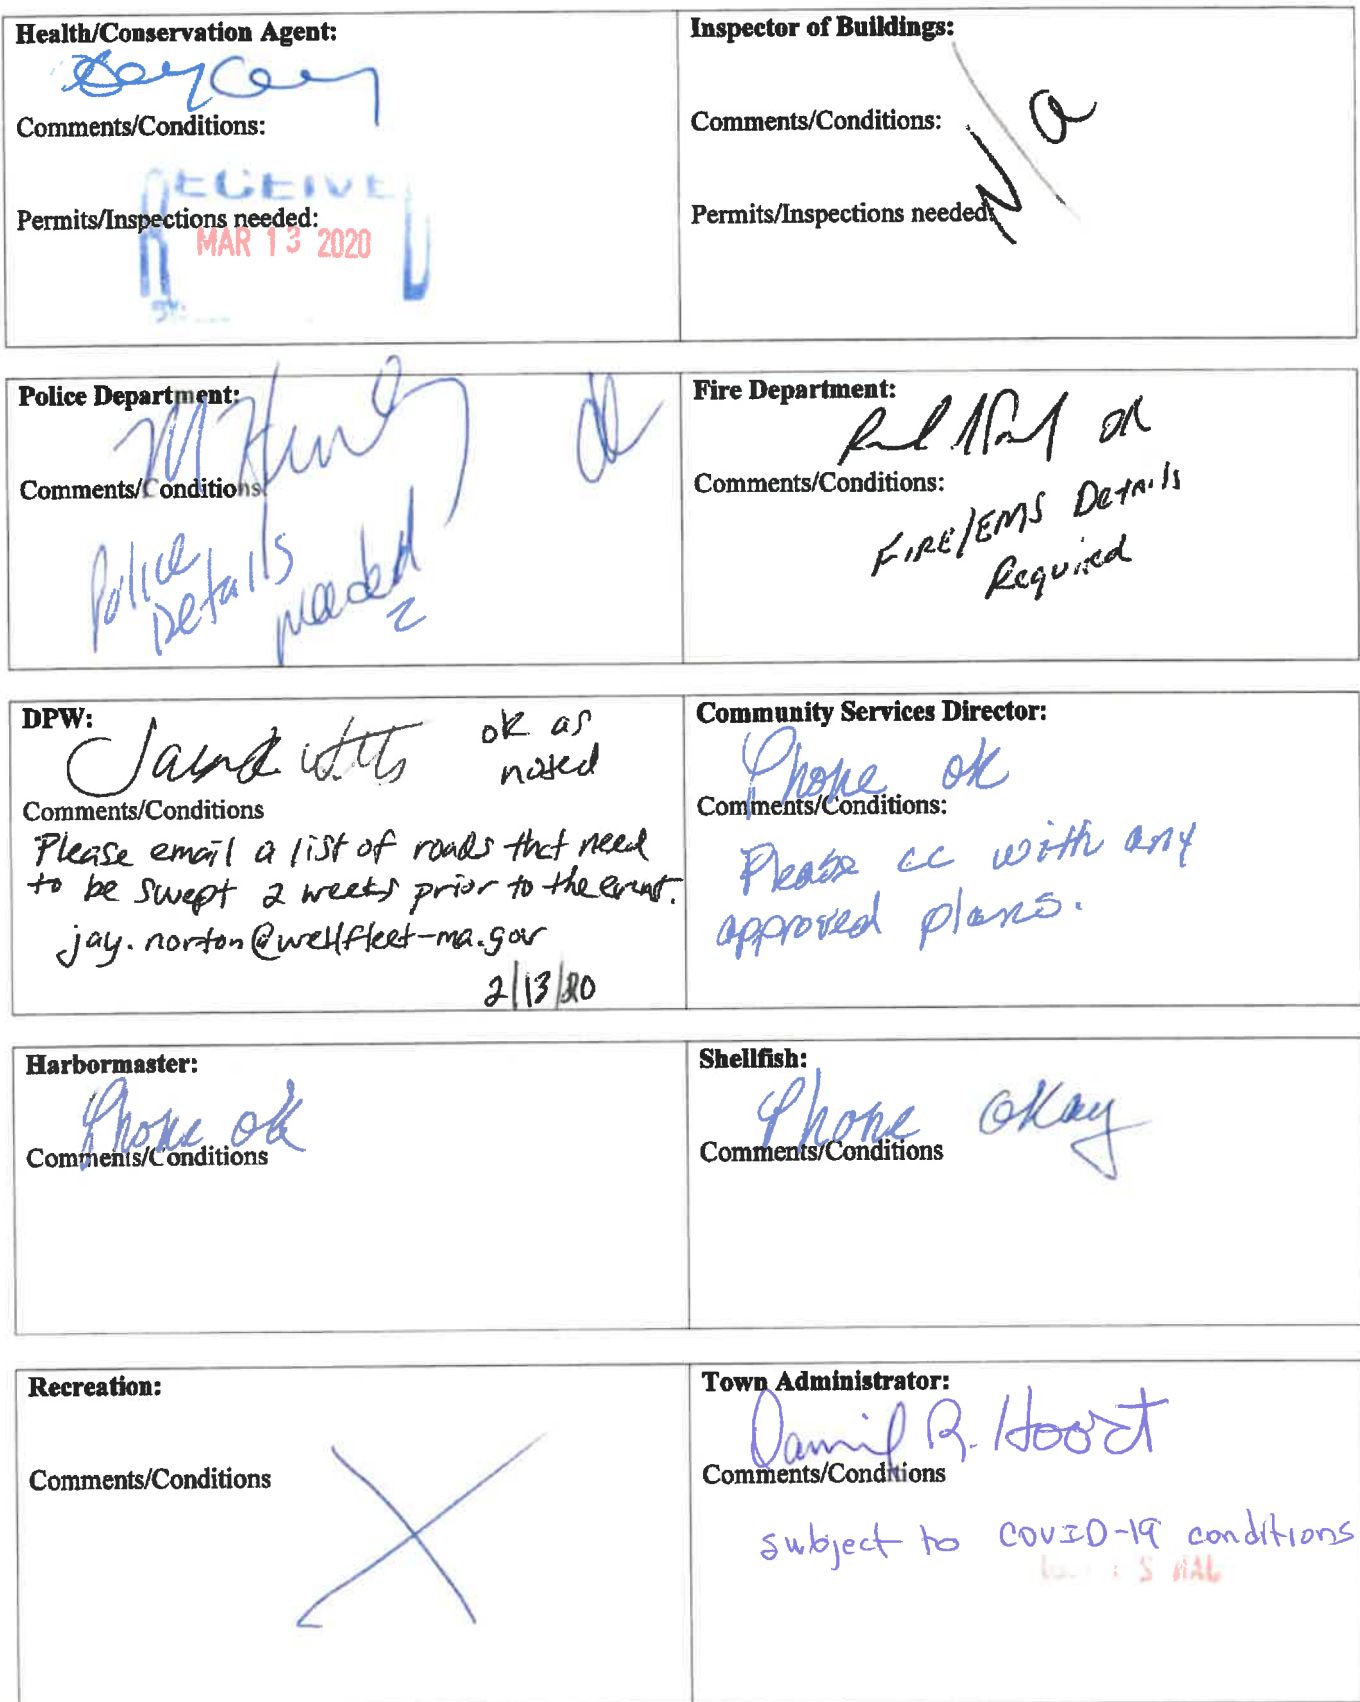 Health/Conservation Agent:
Comments/Conditions:
RECEIVED
Permits/Inspections needed:
MAR 13 2020
Inspector of Buildings:
N/a
Comments/Conditions:
Permits/Inspections needed:
Police Department:
ok
Comments/Conditions:
Police
Details
needed
2
Fire Department:
ok
Comments/Conditions:
FIRE/EMS Details
Required
DPW:
ok as
noted
Comments/Conditions
Please email a list of roads that need
to be swept 2 weeks prior to the event.
jay.norton@wellfleet-ma.gov
2/13/20
Community Services Director:
Phone ok
Comments/Conditions:
Please cc with any
approved plans.
Harbormaster:
Phone ok
Comments/Conditions
Shellfish:
Phone okay
Comments/Conditions
Recreation:
Comments/Conditions
Town Administrator:
Daniel R. Hoort
Comments/Conditions
subject to COVID-19 conditions